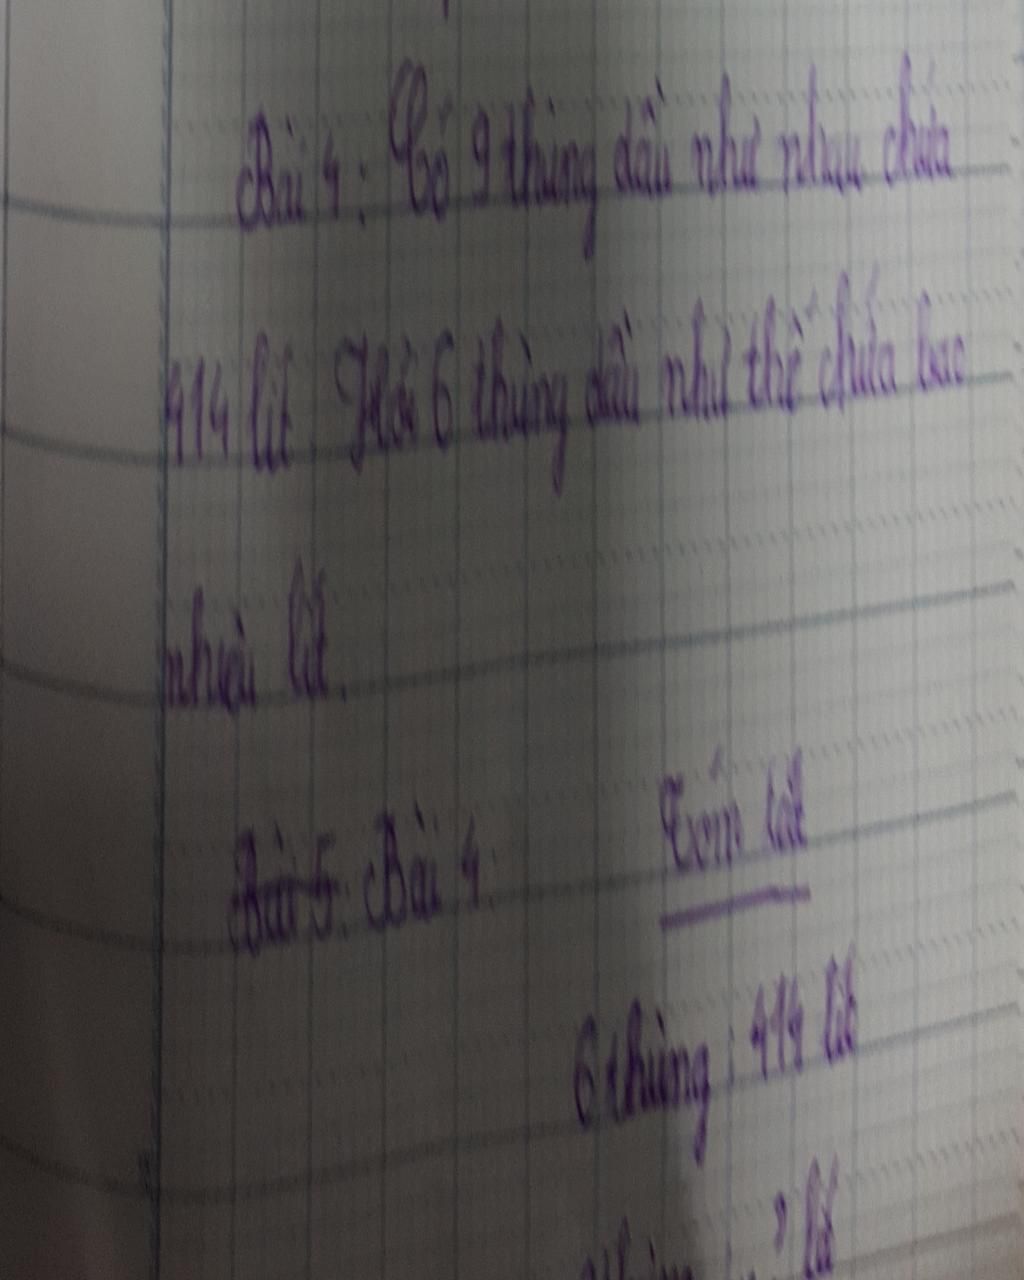 Bài 4: Có 9 thùng dầu như nhau chứa
414 lít. Hỏi 6 thùng dầu như thế chứa bao
nhiêu lít.
Bài 5. Bài 4. Tóm tắt
6 thùng : 414 lít
thùng : ? lít